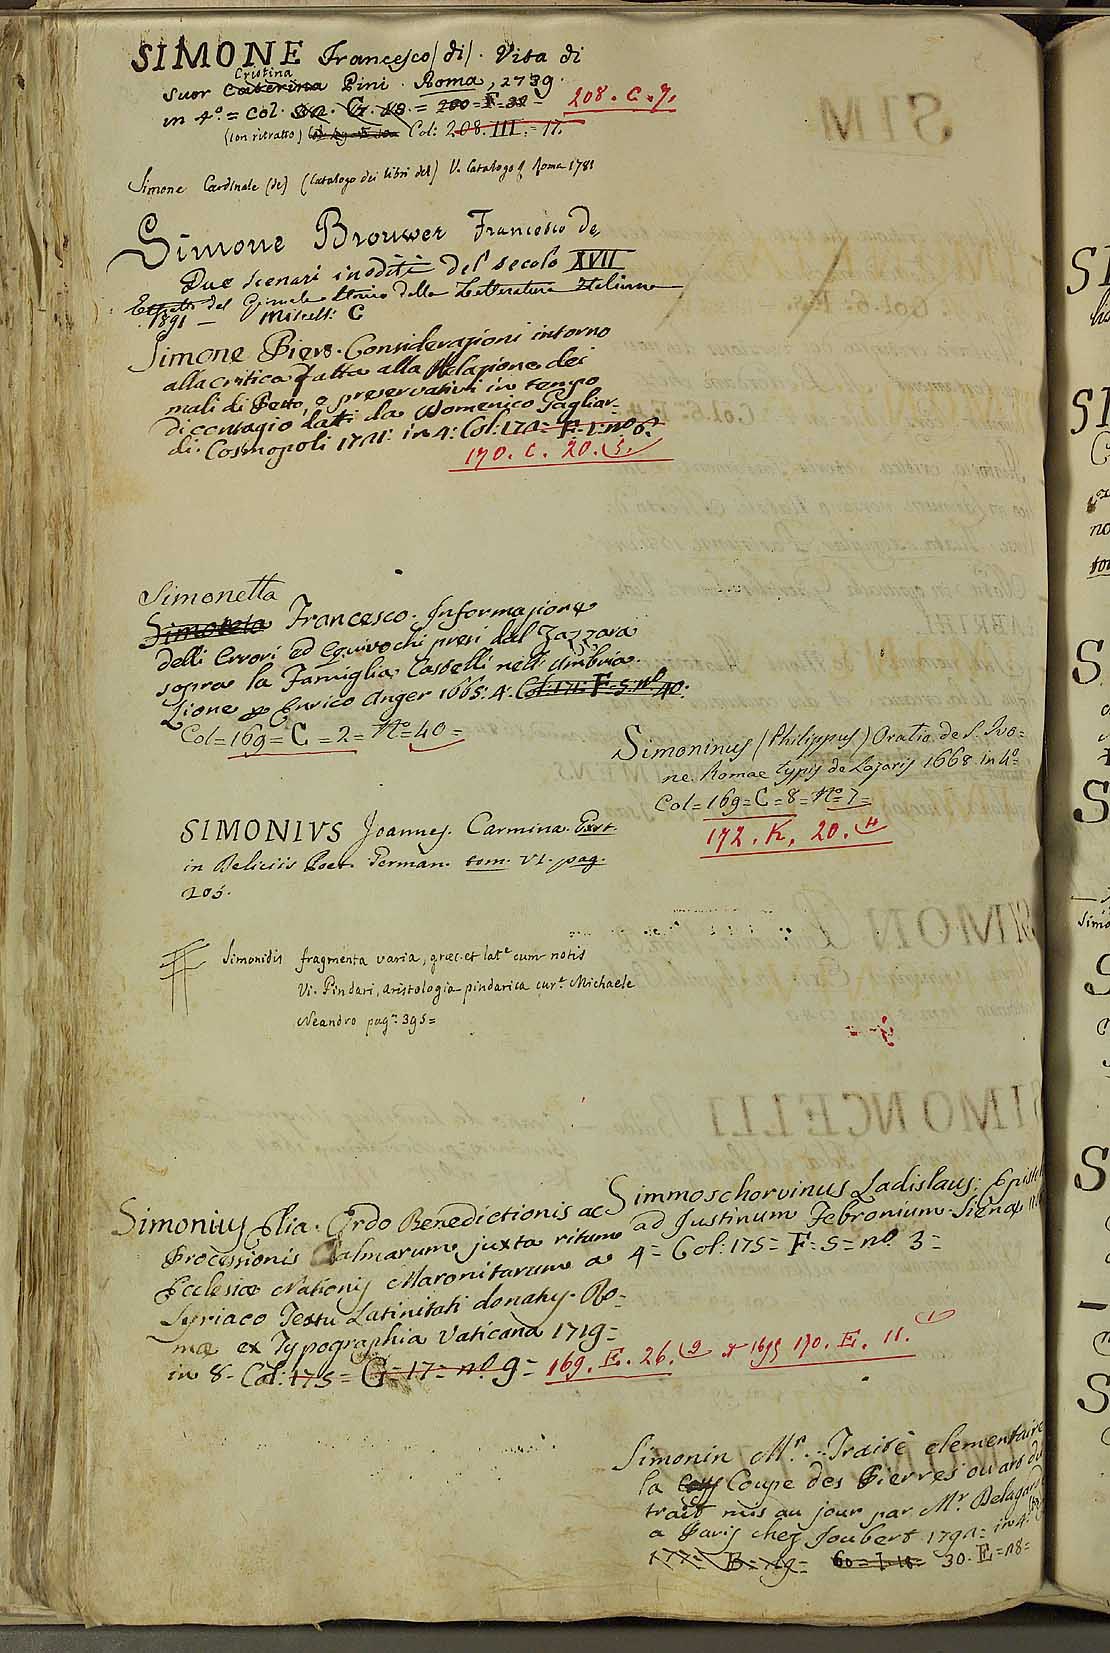 SIMONE Francesco (di). Vita di
Cristina
suor Caterina Pini. Roma, 1739.
in 4.º = Col. = 200 = F = 32 = 208. C. 7.
(con ritratto) Col: 208. III. = 17.
Simone Cardinale (de) (Catalogo dei libri del) V. Catalogo Roma 1781
Simone Brouwer Francesco De
Due scenari inediti del secolo XVII
Estratto del Giornale storico della Letteratura Italiana
1891 — Miscell: C
Simone Piero. Considerazioni intorno
alla critica fatta alla Relazione dei
mali di Petto, e preservativi in tempo
di contagio dati da Domenico Gagliar-
di. Cosmopoli 1721: in 4: Col: 172 = F = 1: nº 6:
170. C. 20. 5.
Simonetta
Simoneta Francesco. Informazione
delli errori ed equivochi presi dal Zazzara
sopra la Famiglia Castelli nell'Umbria.
Lione Enrico Anger 1665: 4: Col: 171: F = 5: nº 40.
Col = 169 = C = 2 = Nº = 40 =
Simoninus (Philippus) Oratio de S. Ivo=
ne. Romae typis de Lazaris 1668 in 4º =
Col = 169 = C = 8 = Nº = 7 =
172. K. 20. 4
SIMONIVS Joannes. Carmina. Ext.
in Deliciis Poet. German. tom. VI. pag.
203.
Simonidis fragmenta varia, græc. et latº cum notis
Vi. Pindari, aristologia pindarica curº Michaele
Neandro pagº 395 =
Simonius Elia. Ordo Benedictionis ac
Processionis Palmarum juxta ritum
Ecclesiæ Nationis Maronitarum a
Syriaco Textu Latinitati donatus. Ro=
mæ ex Typographia Vaticana 1719 =
in 8 - Col: 175 = G = 17 = nº 9 = 169. E. 26. 9 & 1695 170. E. 11. 1
Simmoschorvinus Ladislaus:
ad Justinum Febronium. Sienæ
4 = Col: 175 = F = 5 = nº 3 =
Simonin Mr. Traité elementaire
la Coupe des Pierres ou art du
trait mis au jour par Mr. Delagard
a Paris chez Joubert 1792 = in 4.
177 = B = 19 = 60 = I. 18 = 30. E = n8 =